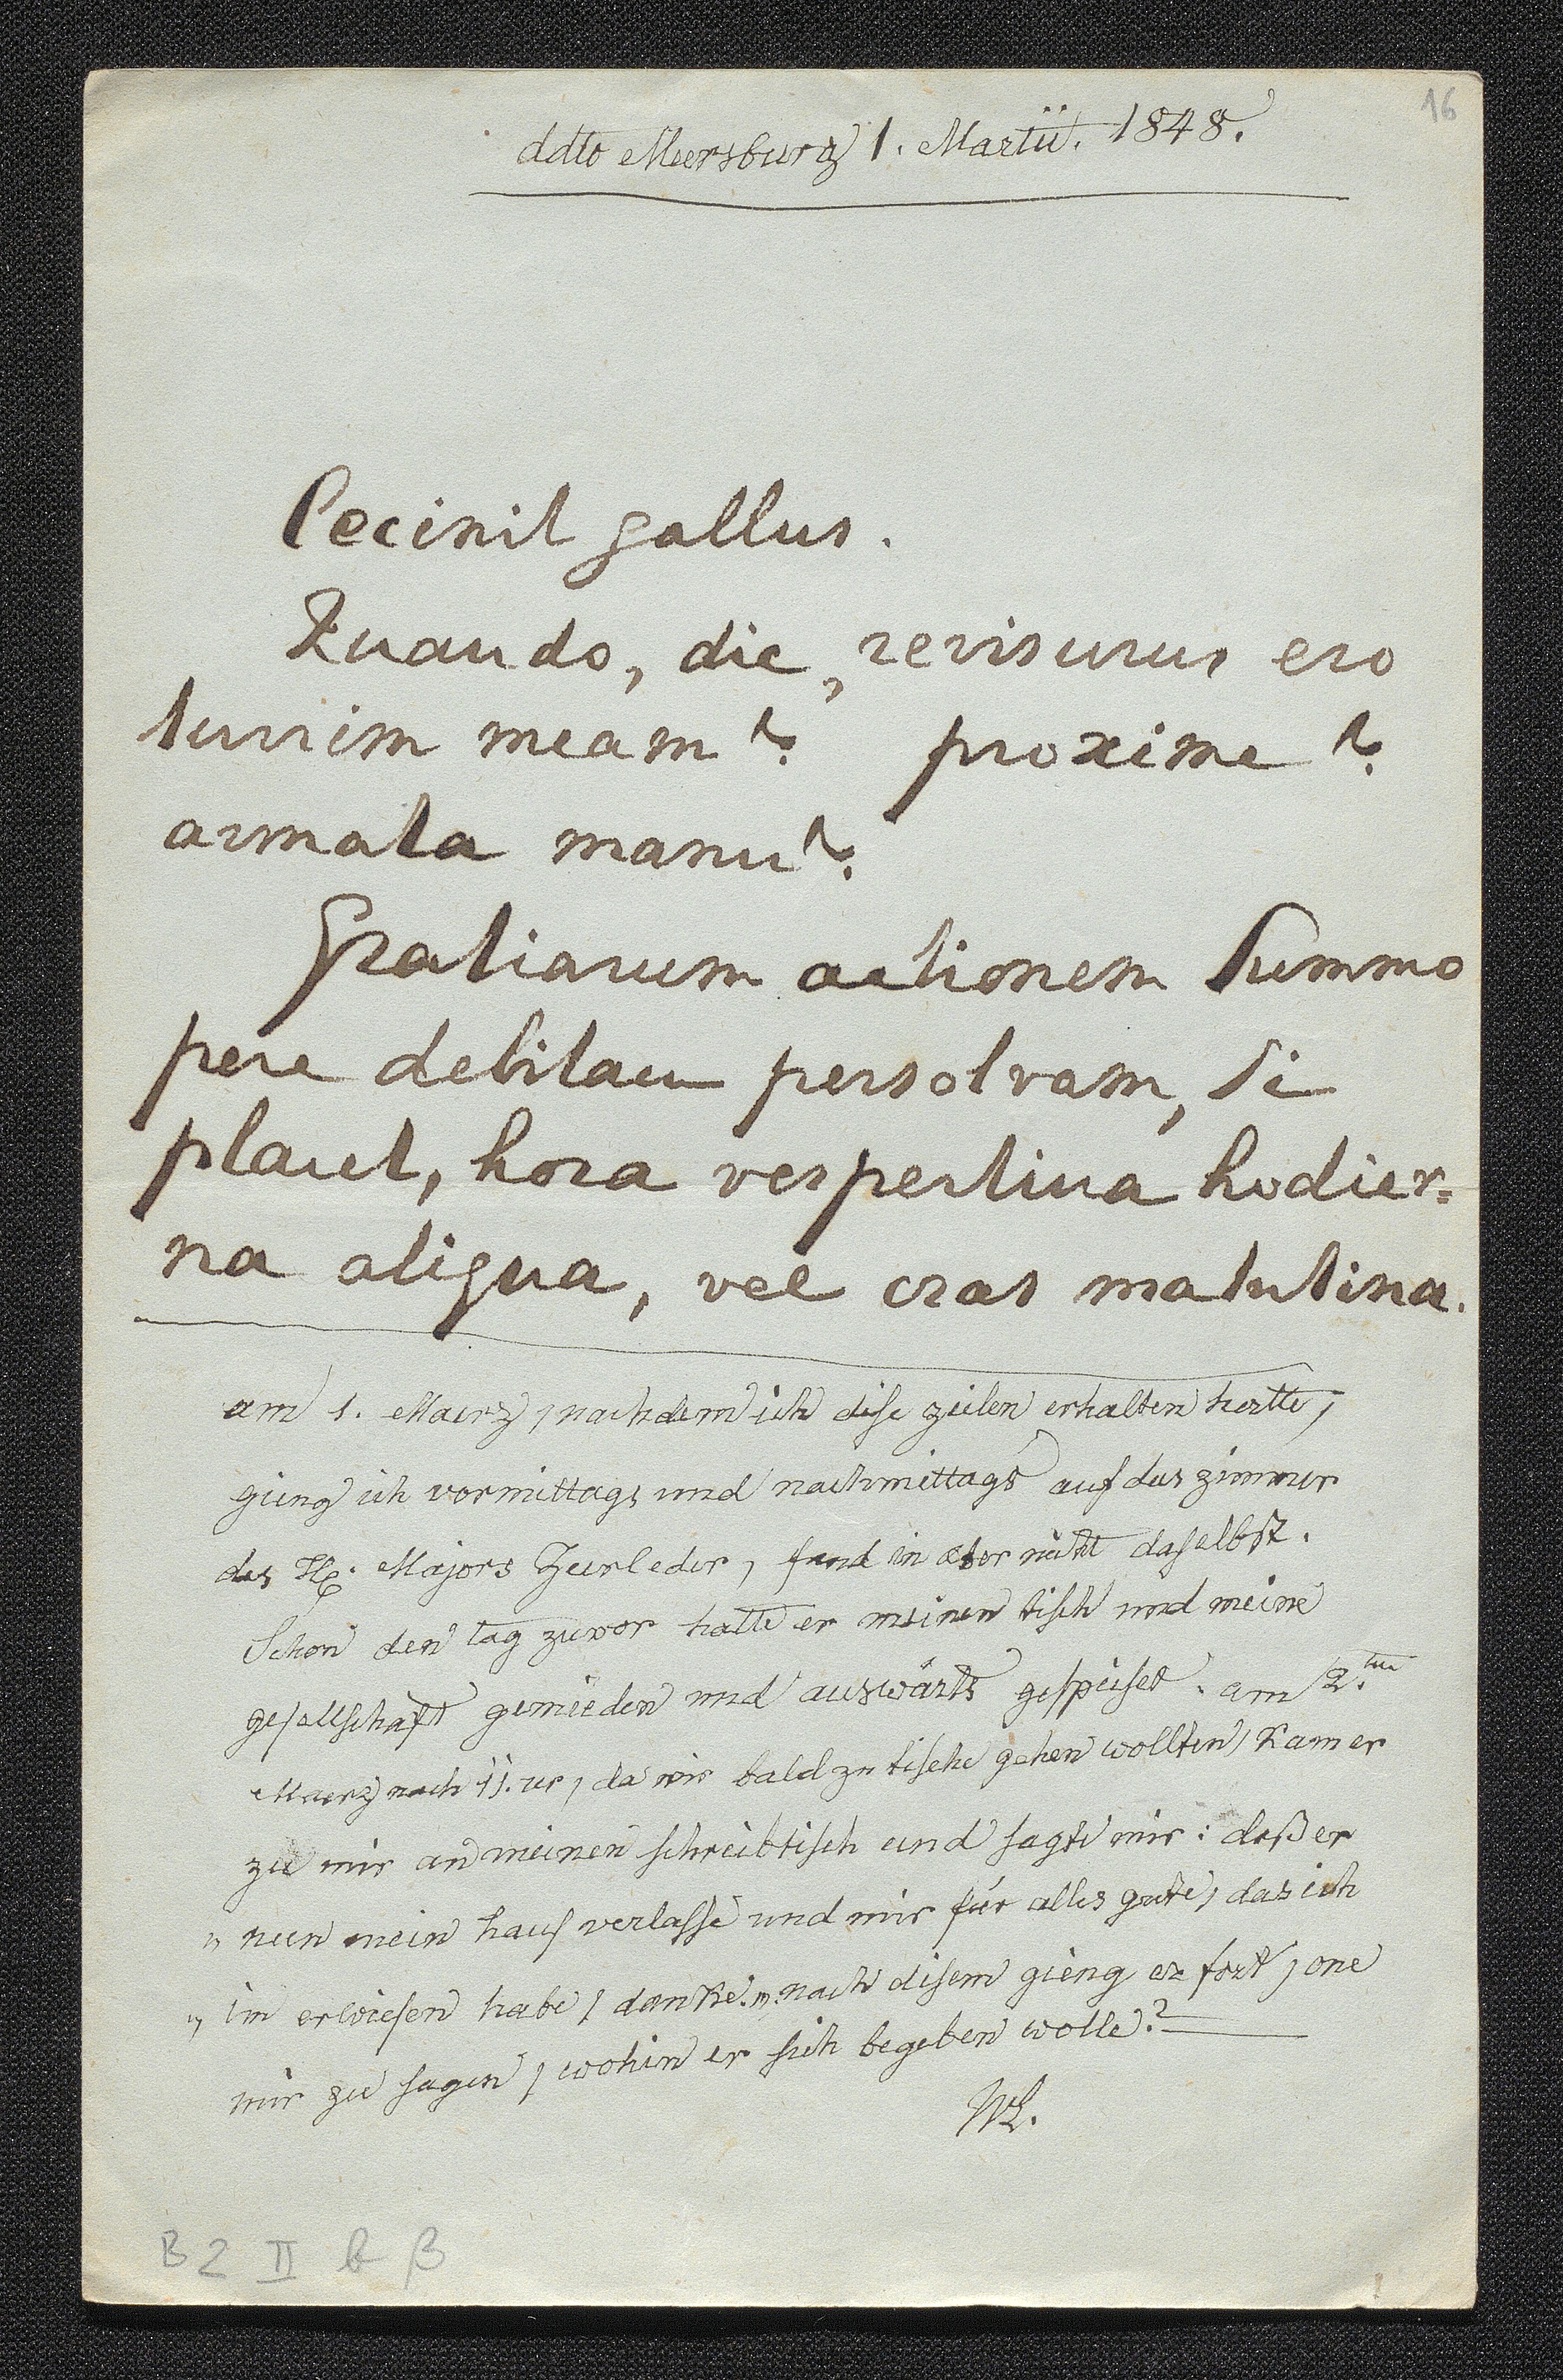 16
ddto Mersburg 1. Martii. 1848.
Cecinit gallus.
Quando, dic, revisurus ero
turrim meam? proxime?
armata manu?
Gratiarum actionem summo
pere debitam persolvam, si
placet, hora vespertina hodier=
na aliqua, vel cras matutina.
am 1. Maerz, nachdem ich dise zeilen erhalten hatte,
gieng ich vormittags und nachmittags auf das zimmer
des H. Majors Zeerleder, fand in aber nicht daselbst.
Schon den tag zuvor hatte er meinen tisch und meine
gesellschaft gemieden und auswärts gespeiset. am 2.ten
Maerz nach 11. ur, da wir bald zu tische gehen wollten, kam er
zu mir an meinen schreibtisch und sagte mir: daß er
„ nun mein haus verlasse und mir für alles gute, das ich
„ im erwiesen habe, danke.„ nach disem gieng er fort, one
mir zu sagen, wohin er sich begeben wolle.?
B 2 II b β